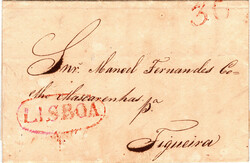 Snr. Manoel Fernandes Co-
elho Mascarenhas pa.
LISBOA
Figueira